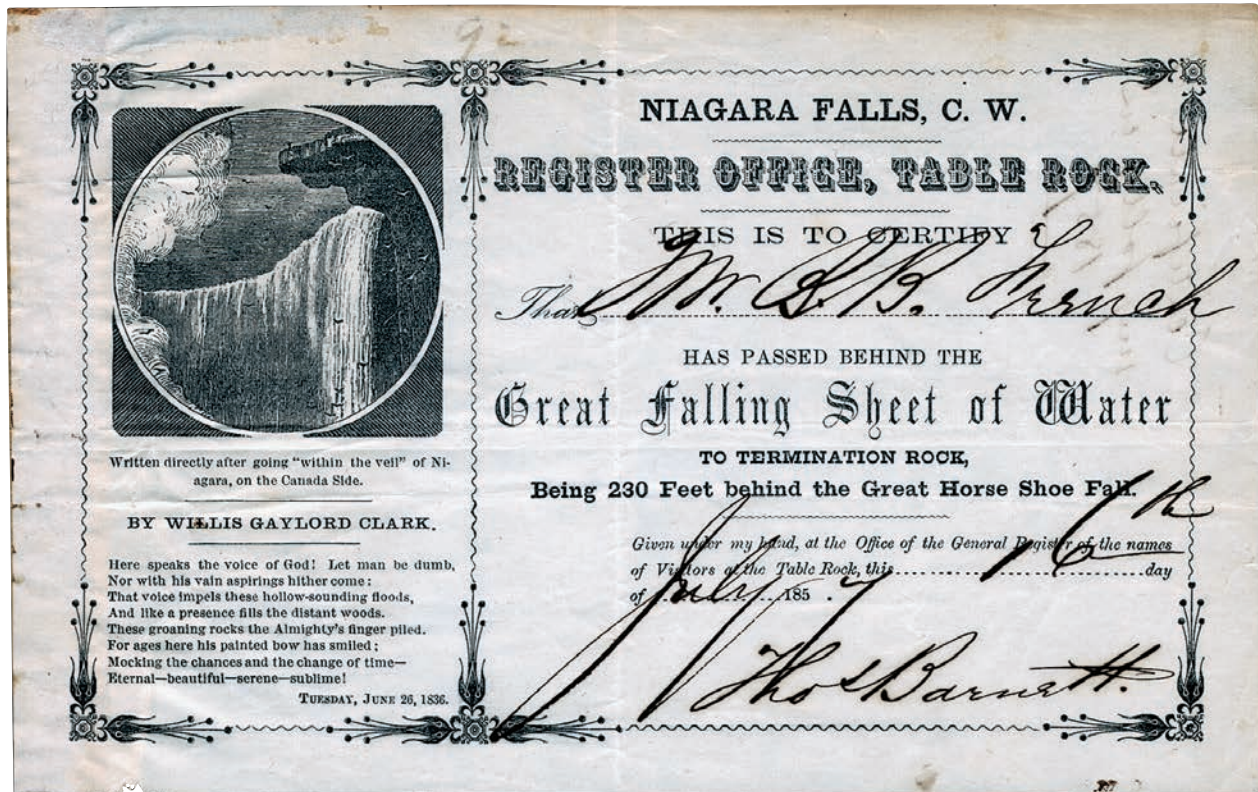 92
Written directly after going "within the veil" of Ni-
agara, on the Canada Side.
BY WILLIS GAYLORD CLARK.
Here speaks the voice of God! Let man be dumb,
Nor with his vain aspirings hither come:
That voice impels these hollow-sounding floods,
And like a presence fills the distant woods.
These groaning rocks the Almighty's finger piled.
For ages here his painted bow has smiled;
Mocking the chances and the change of time—
Eternal—beautiful—serene—sublime!
TUESDAY, JUNE 26, 1836.
NIAGARA FALLS, C. W.
REGISTER OFFICE, TABLE ROCK,
THIS IS TO CERTIFY
That Mr. B. B. French
HAS PASSED BEHIND THE
Great Falling Sheet of Water
TO TERMINATION ROCK,
Being 230 Feet behind the Great Horse Shoe Fall.
Given under my hand, at the Office of the General Register of the names
of Visitors at the Table Rock, this 16th day
of July 1857
Thos Barnett.